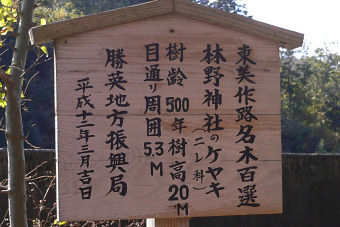 東美作路名木百選
林野神社のケヤキ
(ニレ科)
樹齢500年樹高20M
目通り周囲5.3M
勝英地方振興局
平成十二年三月吉日